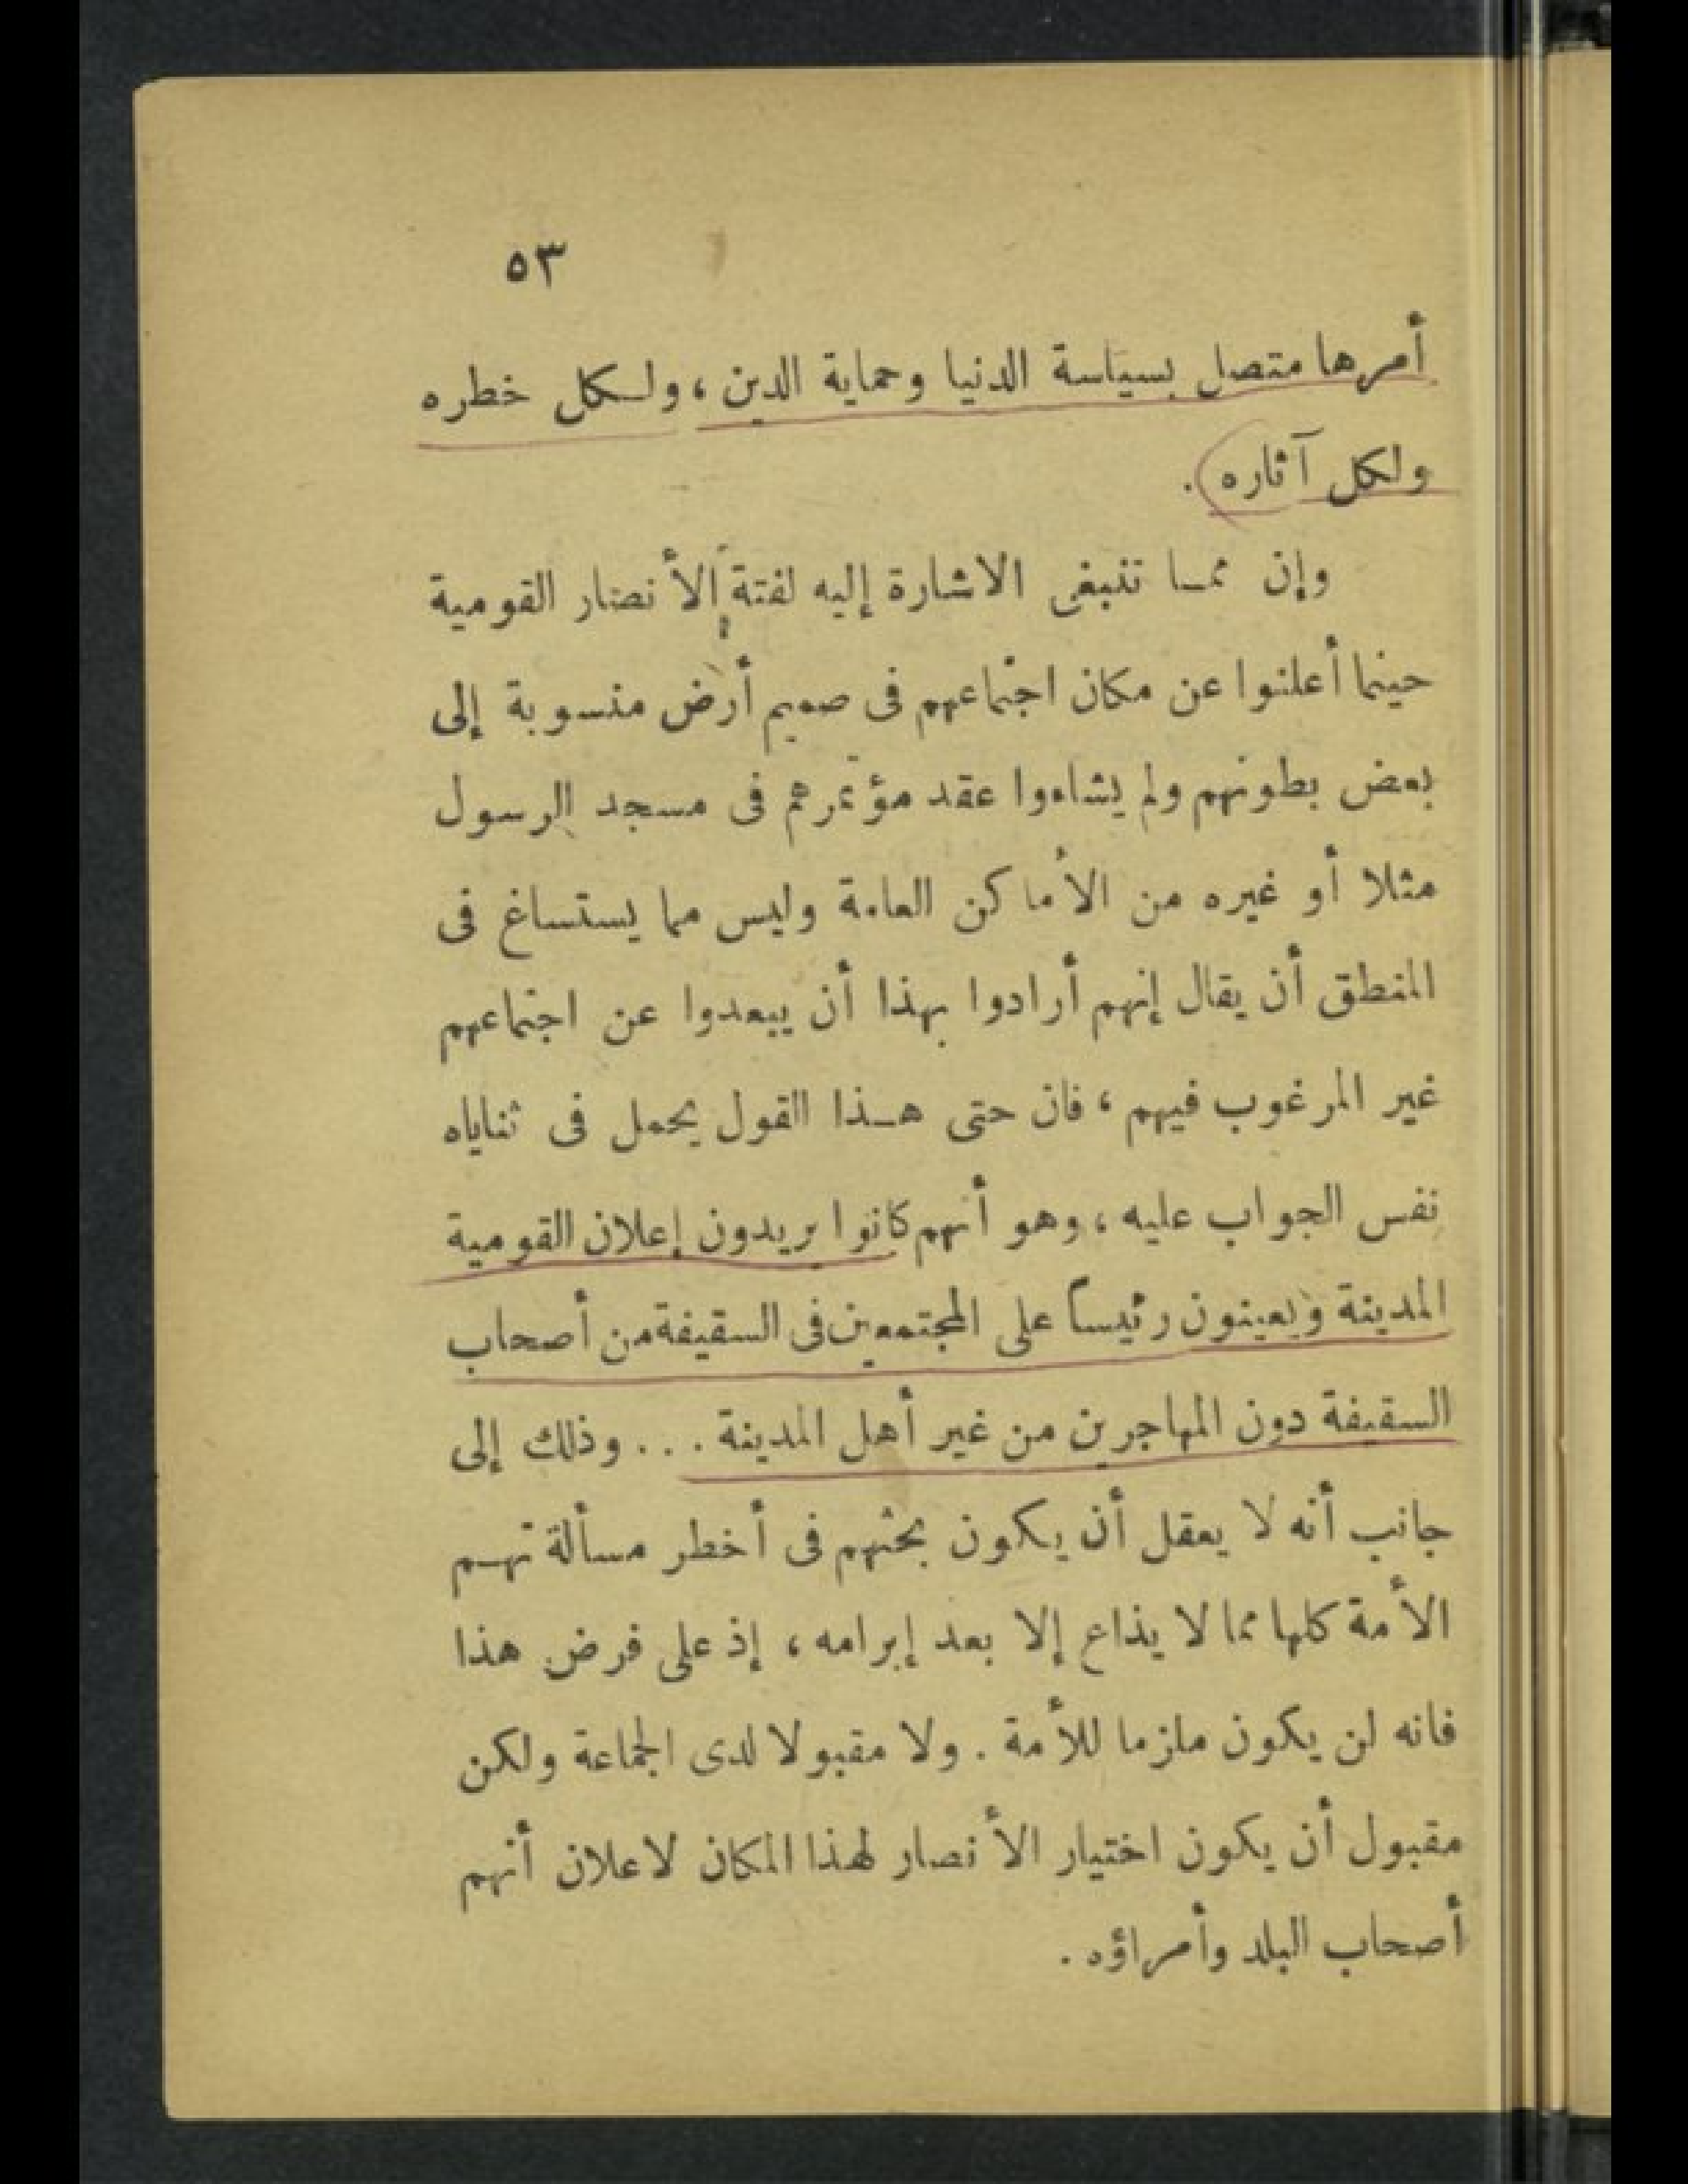 ٥٣
أمرها متصل بسياسة الدنيا وحماية الدين ، ولكل خطره
ولكل آثاره .
وإن مما تنبغى الاشارة إليه لفتة الأنصار القومية
حينما أعلنوا عن مكان اجتماعهم فى صميم أرض منسوبة إلى
بعض بطونهم ولم يشاءوا عقد مؤتمرهم فى مسجد الرسول
مثلا أو غيره من الأماكن العامة وليس مما يستساغ فى
المنطق أن يقال إنهم أرادوا بهذا أن يبعدوا عن اجتماعهم
غير المرغوب فيهم ، فان حتى هذا القول يحمل فى ثناياه
نفس الجواب عليه ، وهو أنهم كانوا يريدون إعلان القومية
المدينة ويعينون رئيساً على المجتمعين فى السقيفة من أصحاب
السقيفة دون المهاجرين من غير أهل المدينة . . . وذلك إلى
جانب أنه لا يعقل أن يكون بحثهم فى أخطر مسألة تهم
الأمة كلها مما لا يذاع إلا بعد إبرامه ، إذ على فرض هذا
فانه لن يكون ملزما للأمة . ولا مقبولا لدى الجماعة ولكن
مقبول أن يكون اختيار الأنصار لهذا المكان لاعلان أنهم
أصحاب البلد وأمراؤه .